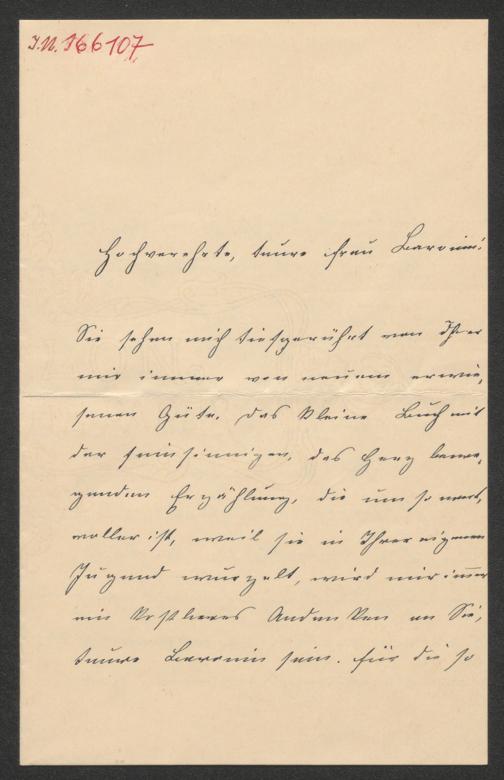 I.N. 166107
Hochverehrte, teure Frau Baronin!
Sie sehen mich tiefgerührt von Ihrer
mir immer von neuem erwie,
senen Güte. Das kleine Buch mit
der feinsinnigen, das Herz bewe,
genden Erzählung, die um so wert,
voller ist, weil sie in Ihrer eigenen
Jugend wurzelt, wird mir immer
ein kostbares Andenken an Sie,
teure Baronin sein. Für die so